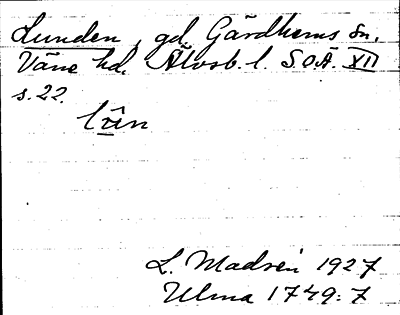 Lunden, gd. Gärdhems sn.
Väne hd. Älvsb. l. S.O.Ä. XII
s. 22.
L. Madsén 1927
Ulma 1749:7